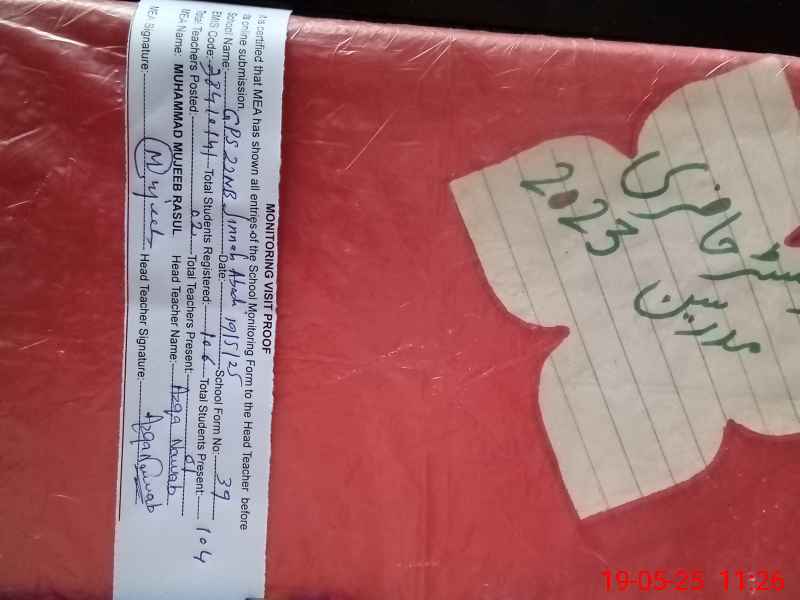 MONITORING VISIT PROOF
It is certified that MEA has shown all entries of the School Monitoring Form to the Head Teacher before
is online submission.
School Name: GPS 22NB Jinnah Abad Date: 19/5/25 School Form No: 39
EMIS Code: Total Students Registered: 106 Total Students Present: 104
Total Teachers Posted: 02 Total Teachers Present: 01
MEA Name: MUHAMMAD MUJEEB RASUL Head Teacher Name: Azqa Nawab
MEA Signature: Mujeeb Head Teacher Signature: Azqa Nawab
حاضری
مدرسین
2023
19-05-25 11:26